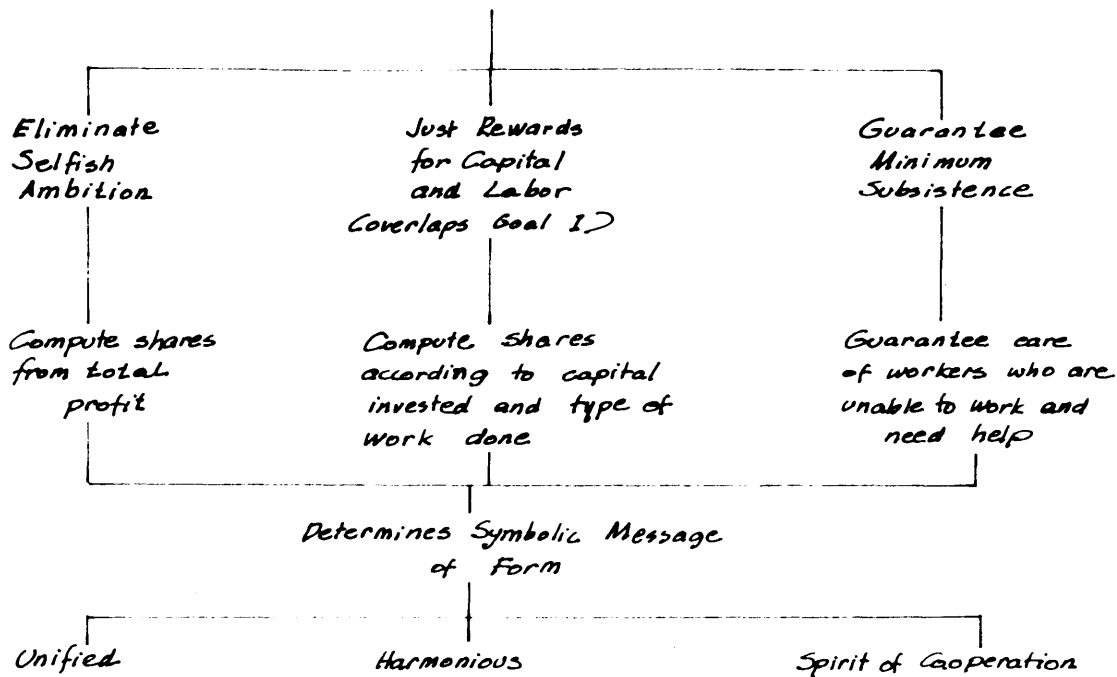 Eliminate
Selfish
Ambition
Just Rewards
for Capital
and Labor
(overlaps Goal I)
Guarantee
Minimum
Subsistence
Compute shares
from total
profit
Compute shares
according to capital
invested and type of
work done
Guarantee care
of workers who are
unable to work and
need help
Determines Symbolic Message
of Form
Unified
Harmonious
Spirit of Cooperation